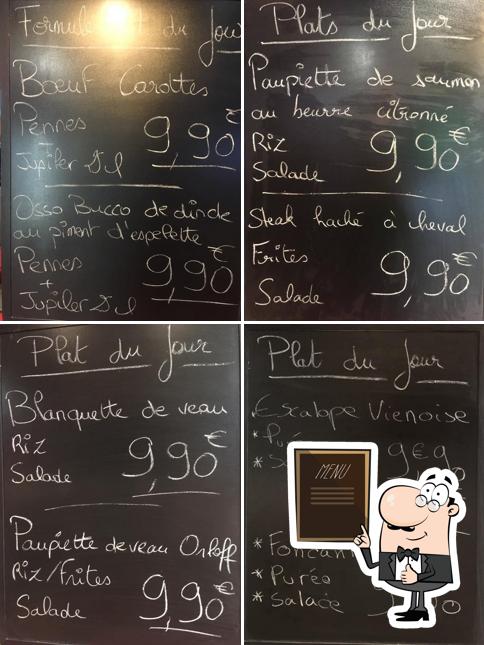 Formule du Jou
Bœuf Carottes
Pennes
9,90€
Jupiler
Osso Bucco de dinde
au piment d'espelette
Pennes
+
9,90€
Jupiler
Plats du Jour
Paupiette de saumon
au beurre citronné
Riz
9,90€
Salade
Steak haché à cheval
Frites
9,90€
Salade
Plat du Jour
Blanquette de veau
Riz
9,90€
Salade
Paupiette de veau Orloff
Riz/Frites
9,90€
Salade
Plat du Jour
Escalope Vienoise
*
9€9
*
MENU
*
* Purée
* Salade